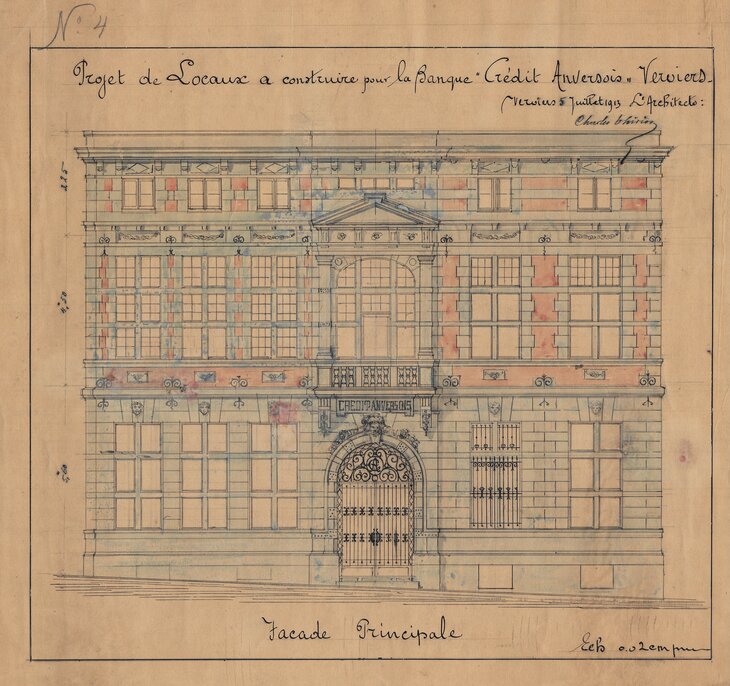 N° 4
Projet de Locaux a construire pour la Banque "Crédit Anversois" Verviers
Verviers 5 Juillet 1913 L'Architecte:
Charles Thirion
2.25
4,50
CREDIT ANVERSOIS
CA
5,00
Facade Principale
Ech 0.02cm pm